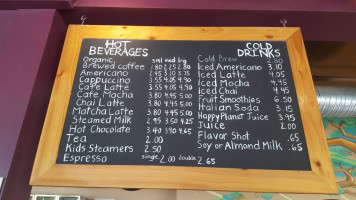 HOT BEVERAGES
Organic sml med lrg
Brewed coffee 1.80 2.25 2.80
Americano 2.45 3.10 3.75
Cappuccino 3.55 4.05 4.90
Cafe Latte 3.55 4.05 4.90
Cafe Mocha 3.80 4.45 5.00
Chai Latte 3.80 4.45 5.00
Matcha Latte 3.80 4.45 5.00
Steamed Milk 2.95 3.50 4.25
Hot Chocolate 3.40 3.90 4.65
Tea 2.00
Kids Steamers 2.50
Espresso single 2.00 double 2.65
COLD DRINKS
Cold Brew 2.80
Iced Americano 3.10
Iced Latte 4.05
Iced Mocha 4.45
Iced Chai 4.45
Fruit Smoothies 6.50
Italian Soda 3.15
Happy Planet Juice 3.95
Juice 2.00
Flavor Shot .65
Soy or Almond Milk .65